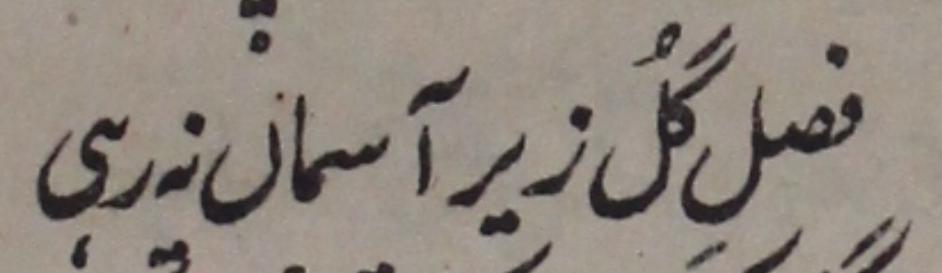 فصل گُل زیر آسماں نہ رہی